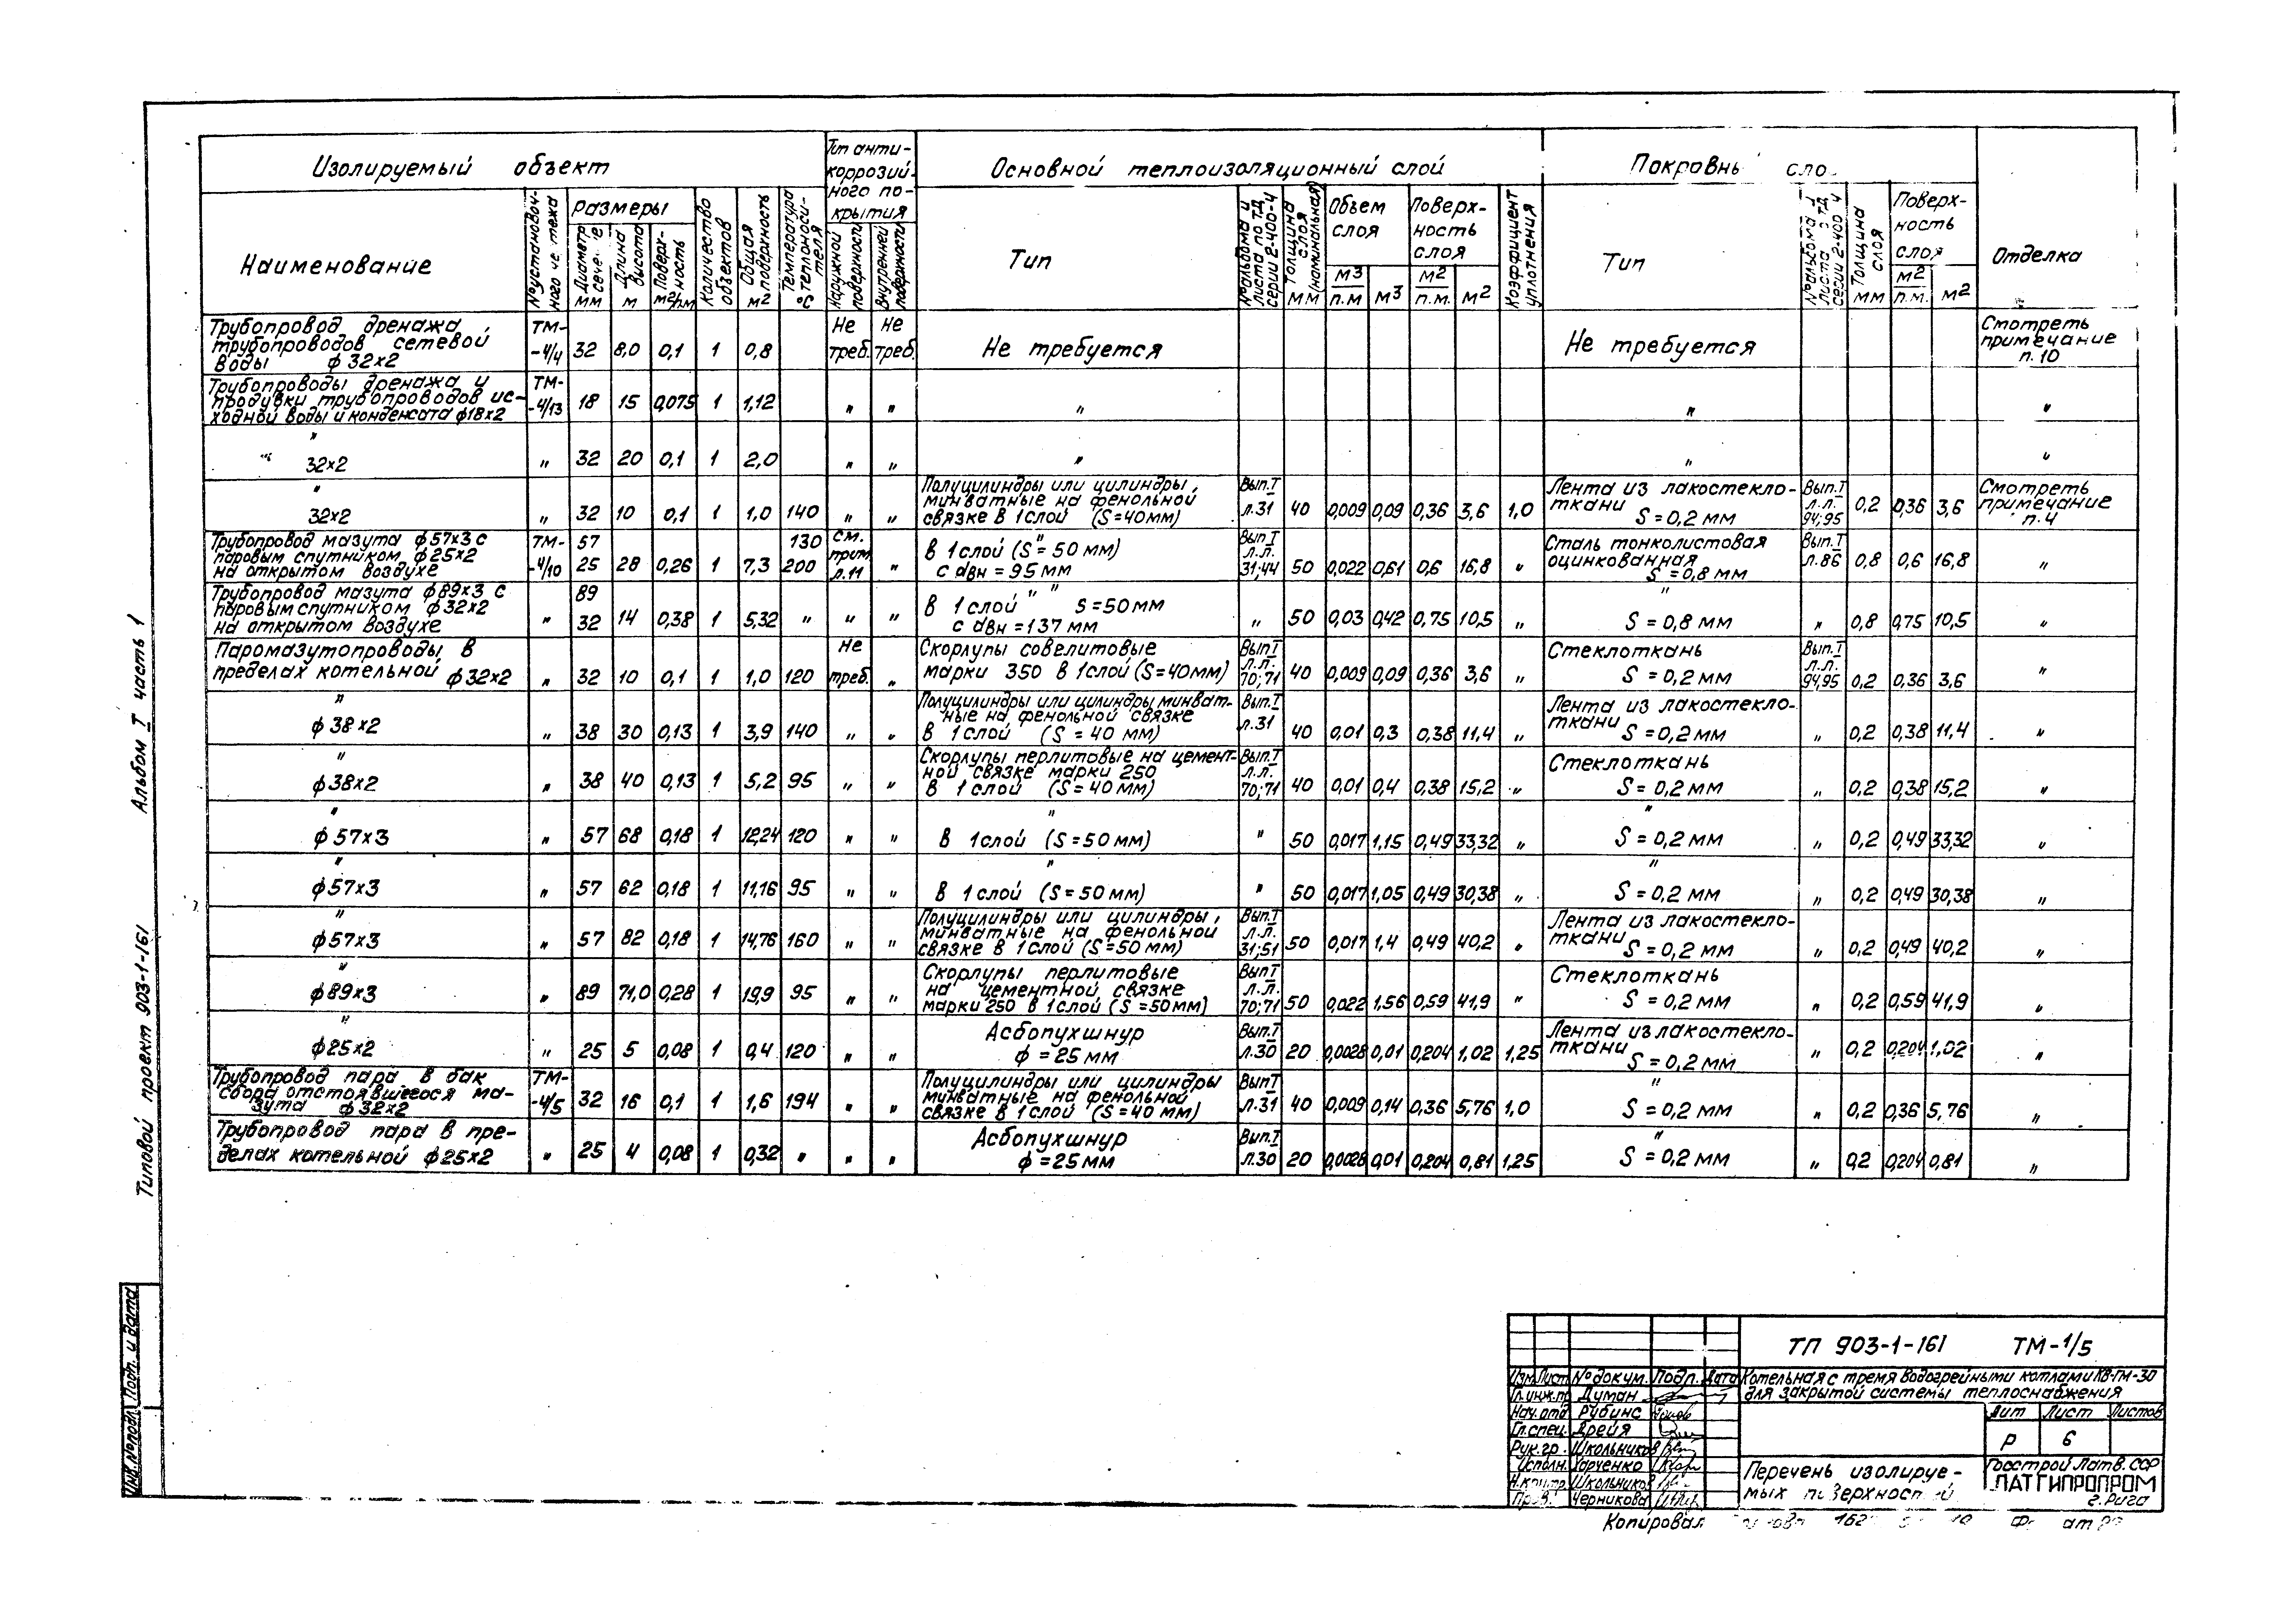 Изолируемый объект
Тип анти-
коррозий-
ного по-
крытия
Основной теплоизоляционный слой
Покровны сло
Отделка
Наименование
№ установоч-
ного чертежа
Размеры
Диаметр
сечение
мм
Длина
высота
м
Поверх-
ность
м²/пм
Количество
объектов
Общая
поверхность
м²
Температура
теплоноси-
теля
°С
Наружной
поверхности
Внутренней
поверхности
Тип
№ альбома и
листа по ТД
серии 2-400-4
Толщина
слоя
(номинальная)
мм
Объем
слоя
м³/п.м
м³
Поверх-
ность
слоя
м²/п.м.
м²
Коэффициент
уплотнения
Тип
№ альбома
листа ТД
серии 2-400 4
Толщина
слоя
мм
Поверх-
ность
слоя
м²/п.м.
м²
Трубопровод дренажа трубопроводов сетевой воды ф32х2 ТМ--4/4 32 8,0 0,1 1 0,8 Не треб. Не треб. Не требуется Не требуется Смотреть примечание п.10
Трубопроводы дренажа и продувки трубопроводов исходной воды и конденсата ф18х2 ТМ--4/13 18 15 0,075 1 1,12 " " " " "
" 32х2 " 32 20 0,1 1 2,0 " " " " "
" 32х2 " 32 10 0,1 1 1,0 140 " " Полуцилиндры или цилиндры, минватные на фенольной связке в 1слой (S=40мм) Вып.I л.31 40 0,009 0,09 0,36 3,6 1,0 Лента из лакостеклоткани S=0,2 мм Вып.I л.л. 94;95 0,2 0,36 3,6 Смотреть примечание п.4
Трубопровод мазута ф57х3 с паровым спутником ф25х2 на открытом воздухе ТМ--4/10 57 25 28 0,26 1 7,3 130 200 см. прим. п.11 " " в 1слой (S=50 мм) с dвн=95мм Вып.I л.л. 31;44 50 0,022 0,61 0,6 16,8 " Сталь тонколистовая оцинкованная S=0,8 мм Вып.I л.86 0,8 0,6 16,8 "
Трубопровод мазута ф89х3 с паровым спутником ф32х2 на открытом воздухе " 89 32 14 0,38 1 5,32 " " " " " в 1слой S=50мм с dвн=137 мм " 50 0,03 0,42 0,75 10,5 " " S=0,8 мм " 0,8 0,75 10,5 "
Паромазутопроводы в пределах котельной ф32х2 " 32 10 0,1 1 1,0 120 Не треб. " Скорлупы совелитовые марки 350 в 1слой (S=40мм) Вып I л.л. 70;71 40 0,009 0,09 0,36 3,6 " Стеклоткань S=0,2 мм Вып.I л.л. 94,95 0,2 0,36 3,6 "
" ф38х2 " 38 30 0,13 1 3,9 140 " " Полуцилиндры или цилиндры минватные на фенольной связке в 1слой (S=40 мм) Вып.I л.31 40 0,01 0,3 0,38 11,4 " Лента из лакостеклоткани S=0,2мм " 0,2 0,38 11,4 "
" ф38х2 " 38 40 0,13 1 5,2 95 " " Скорлупы перлитовые на цементной связке марки 250 в 1слой (S=40мм) Вып.I л.л. 70;71 40 0,01 0,4 0,38 15,2 " Стеклоткань S=0,2 мм " 0,2 0,38 15,2 "
" ф57х3 " 57 68 0,18 1 12,24 120 " " " в 1слой (S=50мм) " 50 0,017 1,15 0,49 33,32 " " S=0,2 мм " 0,2 0,49 33,32 "
" ф57х3 " 57 62 0,18 1 11,16 95 " " " в 1слой (S=50мм) " 50 0,017 1,05 0,49 30,38 " " S=0,2 мм " 0,2 0,49 30,38 "
" ф57х3 " 57 82 0,18 1 14,76 160 " " Полуцилиндры или цилиндры, минватные на фенольной связке в 1слой (S=50мм) Вып.I л.л. 31;51 50 0,017 1,4 0,49 40,2 " Лента из лакостеклоткани S=0,2 мм " 0,2 0,49 40,2 "
" ф89х3 " 89 71,0 0,28 1 19,9 95 " " Скорлупы перлитовые на цементной связке марки 250 в 1слой (S=50мм) Вып I л.л. 70;71 50 0,022 1,56 0,59 41,9 " Стеклоткань S=0,2 мм " 0,2 0,59 41,9 "
" ф25х2 " 25 5 0,08 1 0,4 120 " " Асбопухшнур ф=25 мм Вып.I л.30 20 0,0028 0,01 0,204 1,02 1,25 Лента из лакостеклоткани S=0,2 мм " 0,2 0,204 1,02 "
Трубопровод пара в бак сбора отстоявшегося мазута ф32х2 ТМ--4/5 32 16 0,1 1 1,6 194 " " Полуцилиндры или цилиндры минватные на фенольной связке в 1слой (S=40мм) Вып I л.31 40 0,009 0,14 0,36 5,76 1,0 " S=0,2 мм " 0,2 0,36 5,76 "
Трубопровод пара в пределах котельной ф25х2 " 25 4 0,08 1 0,32 " " " Асбопухшнур ф=25мм Вып.I л.30 20 0,0028 0,01 0,204 0,81 1,25 " S=0,2 мм " 0,2 0,204 0,81 "
Типовой проект 903-1-161 Альбом I часть 1
Инв.№ подл. Подп. и дата
ТП 903-1-161 ТМ-1/5
Изм Лист № докум. Подп. Дата
Котельная с тремя водогрейными котлами КВ-ГМ-30
для закрытой системы теплоснабжения
Гл.инж.пр Думан
Нач.отд Рубинс
Гл.спец. Дрейя
Рук.гр. Школьников
Исполн. Харченко
Н.контр. Школьников
Пров. Черникова
Лит Лист Листов
Р 6
Перечень изолируе-
мых поверхностей
Госстрой Латв.ССР
ЛАТГИПРОПРОМ
г.Рига
Копировал